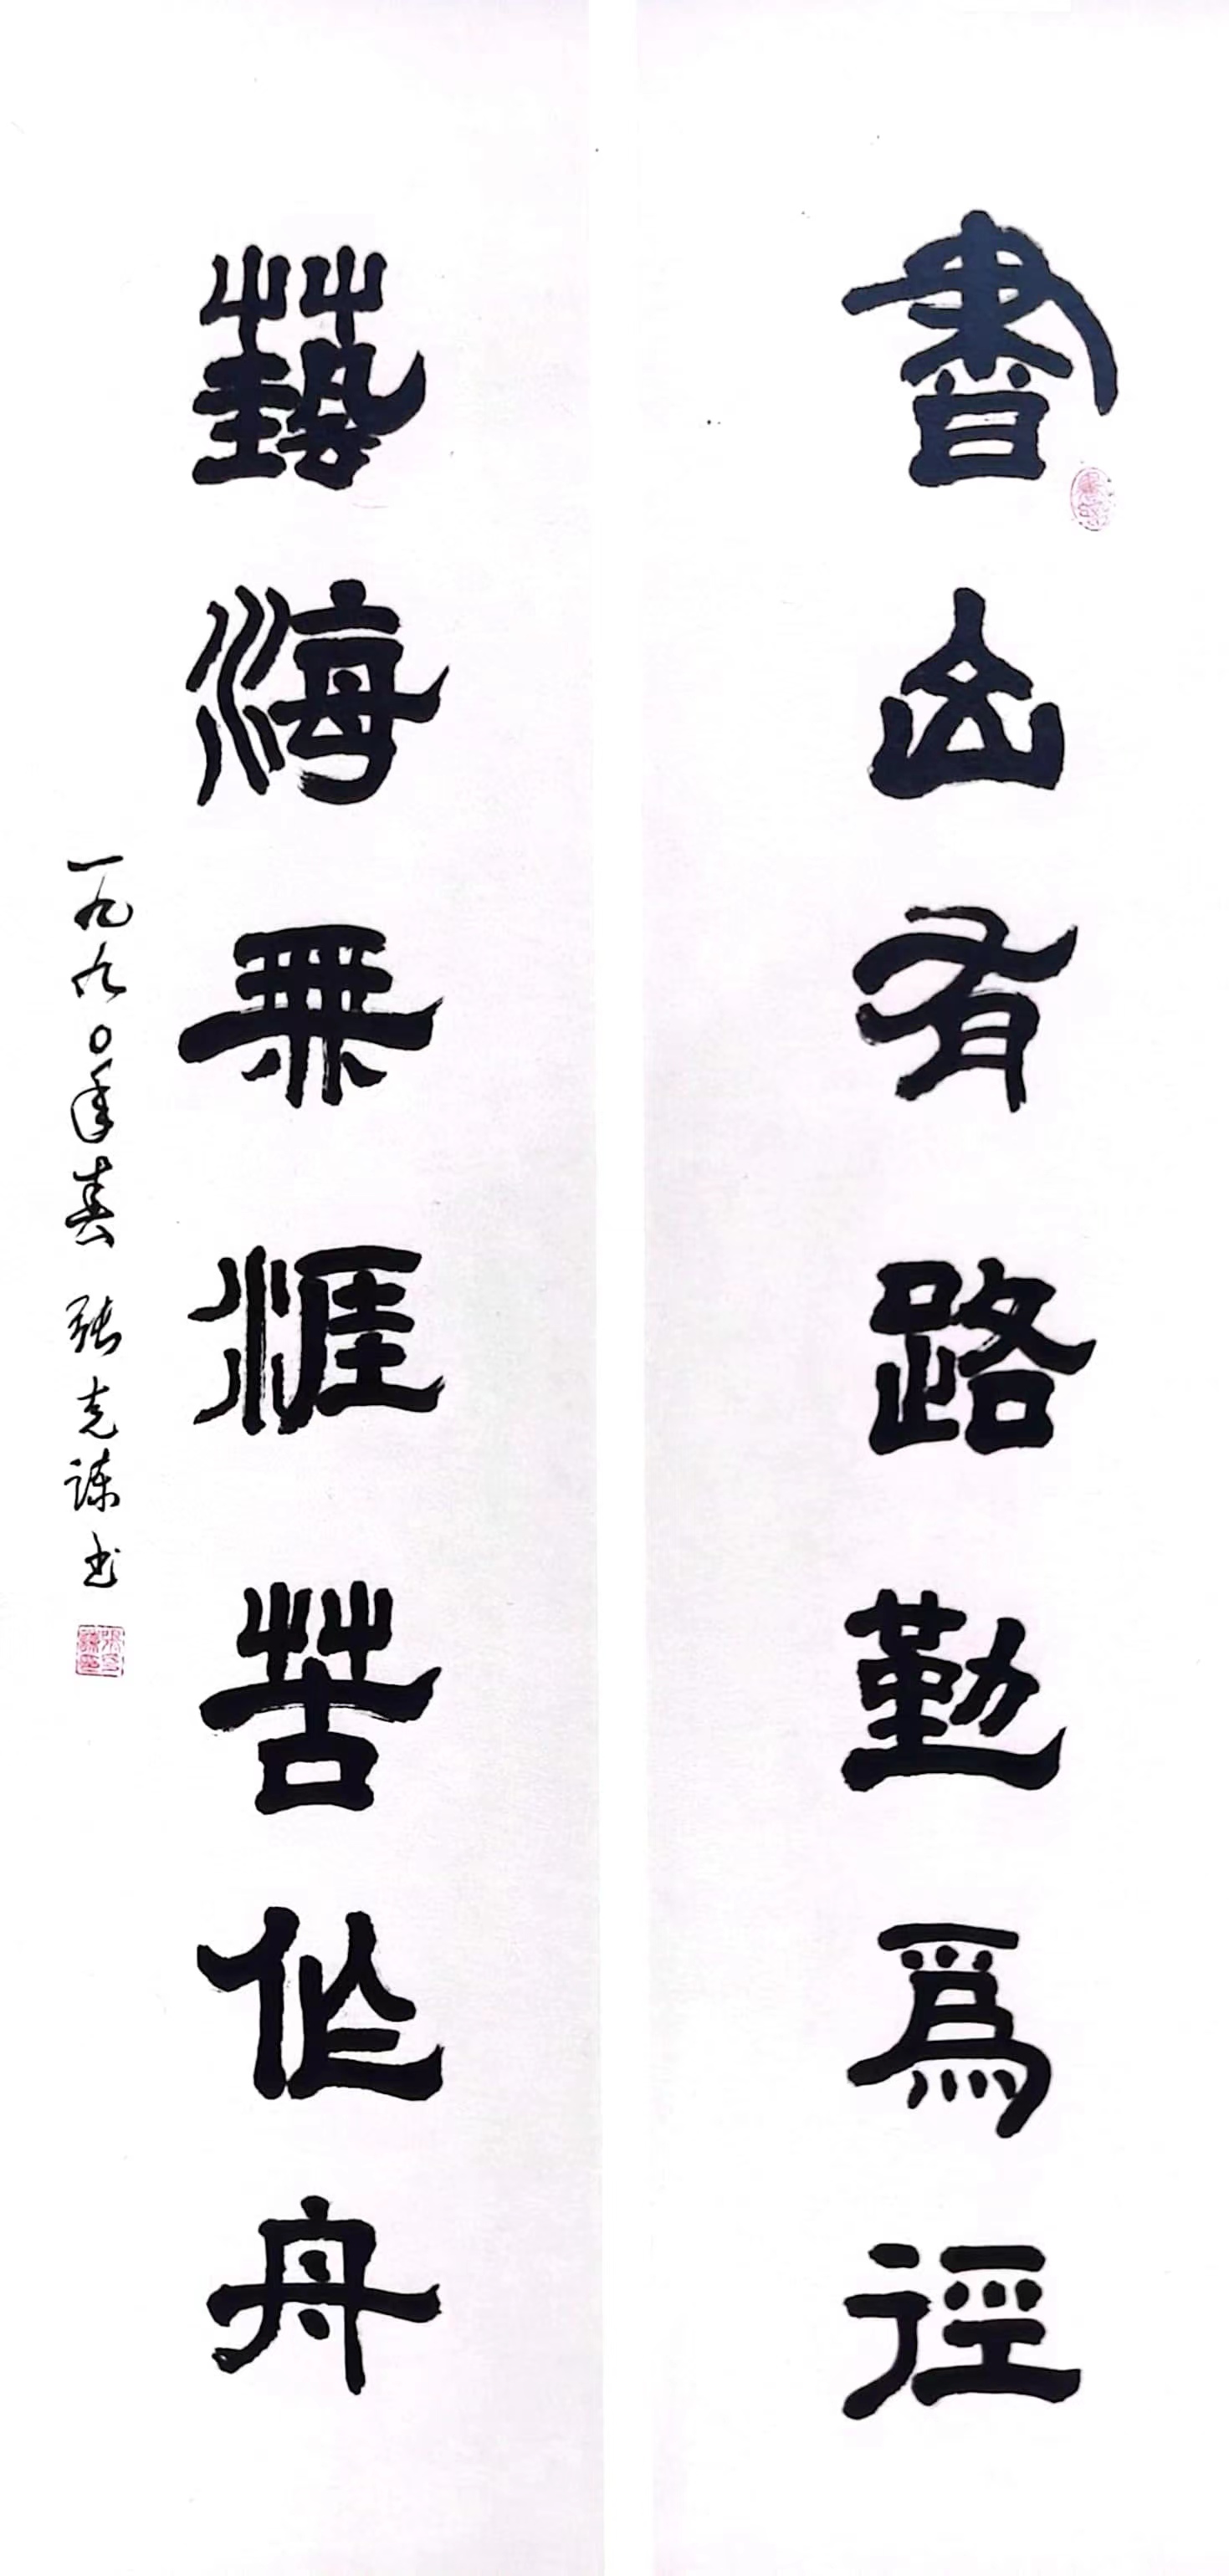 書山有路勤為徑
藝海無涯苦作舟
一九九〇年春 張克謙書